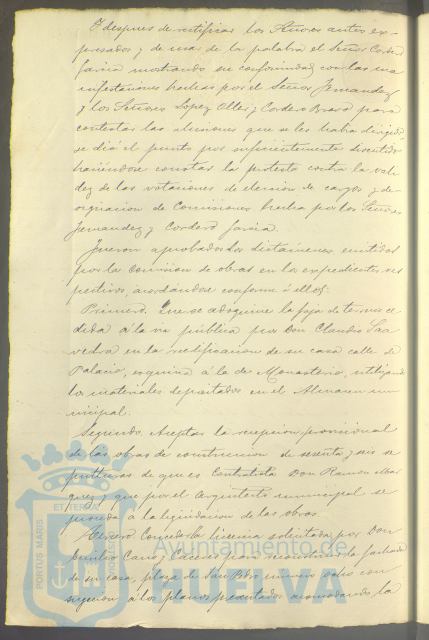 Y despues de rectificar los Señores antes ex-
presados y de usar de la palabra el Señor Cordero
Garcia mostrando su conformidad con las ma
nifestaciones hechas por el Señor Fernandez
y los Señores Lopez Oller y Cordero Bravo para
contestar las alusiones que se les habia dirigido,
se dió el punto por suficientemente discutido
haciendose constar la protesta contra la vali
dez de las votaciones de eleccion de cargos y de-
signacion de Comisiones hecha por los Señores
Fernandez y Cordero Garcia.
Fueron aprobados los dictámenes emitidos
por la Comision de obras en los expedientes res
pectivos, acordándose conforme á ellos:
Primero. Que se adoquine la faja de terreno ce
dida á la via pública por Don Claudio Saa
vedra en la rectificacion de su casa calle de
Palacio, esquina á la de Monasterio, utilizando
los materiales depositados en el Almacen mu
nicipal.
Segundo. Aceptar la recepcion provisional
de las obras de construccion de sesenta y seis se
pulturas de que es Contratista Don Ramon Mar
quez y que por el Arquitecto municipal se
proceda á la liquidacion de las obras.
Tercero. Conceder la licencia solicitada por Don
Emilio Cano y para reconstruir la fachada
de su casa, plaza de San Pedro número ocho con
sujecion á los planos presentados acomodando la
Ayuntamiento de
HUELVA
PORTUS MARIS
ET TERRÆ
CUSTODIA